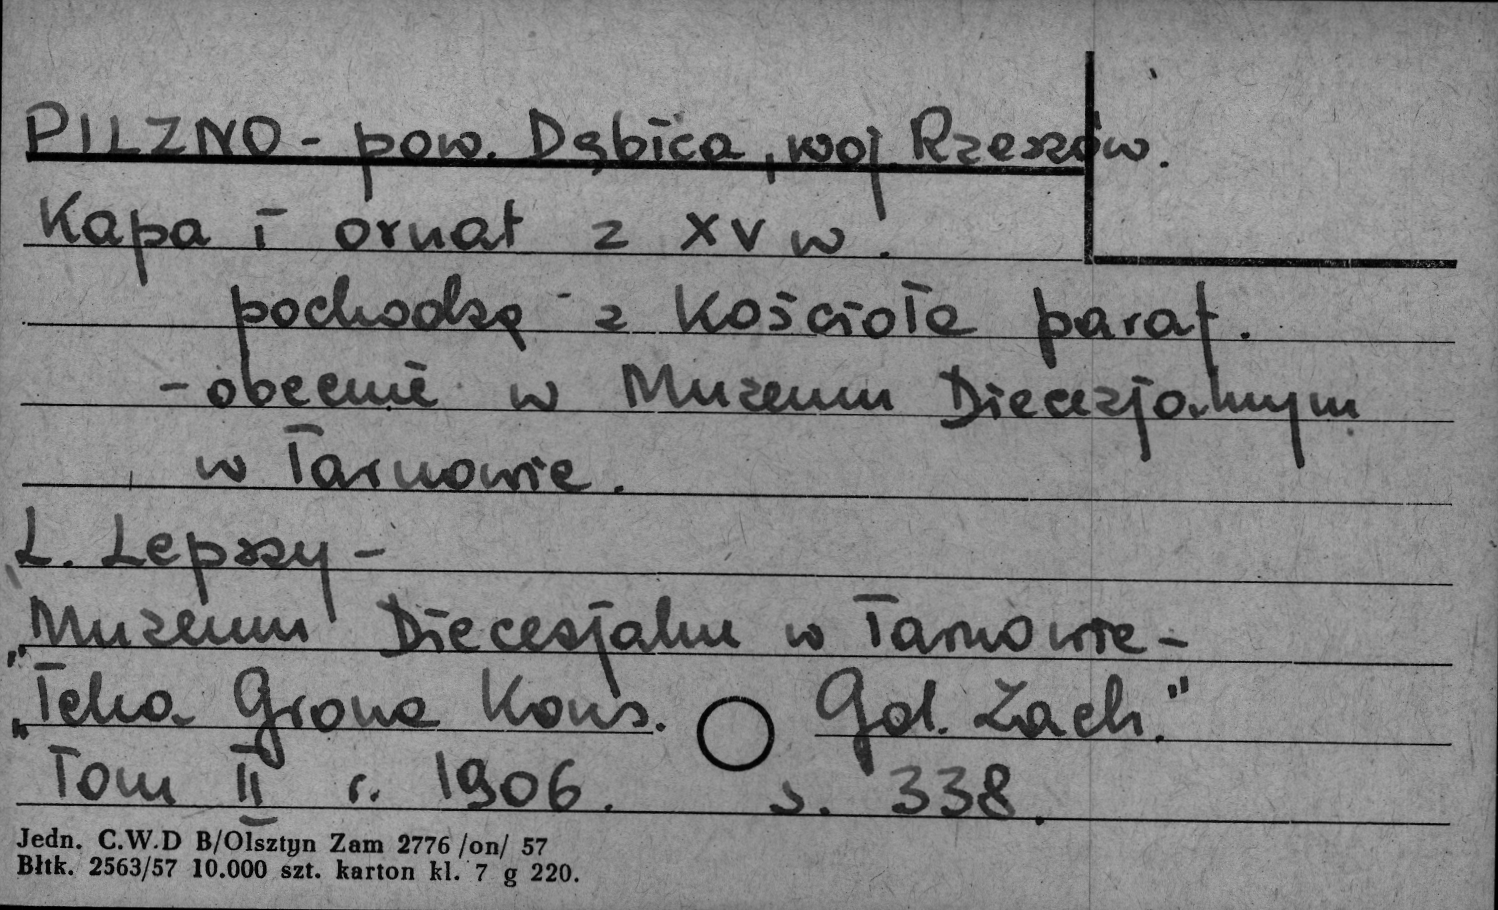 PILZNO - pow. Dębica, woj. Rzeszów.
Kapa i ornat z XV w.
pochodzą z Kościoła paraf.
- obecnie w Muzeum Diecezjalnym
w Tarnowie.
L. Lepszy -
„Muzeum Diecezjalne w Tarnowie -
„Teka Grona Kons. Gal. Zach."
Tom II r. 1906. s. 338.
Jedn. C.W.D B/Olsztyn Zam 2776 /on/ 57
Błtk. 2563/57 10.000 szt. karton kl. 7 g 220.